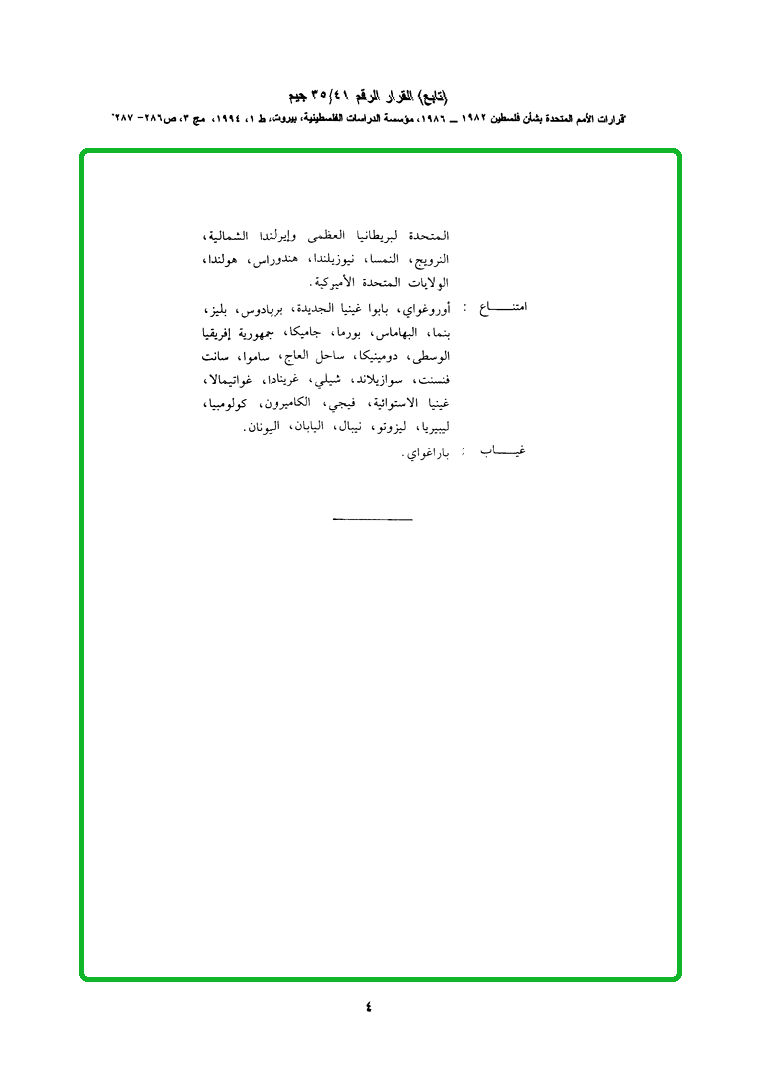 (تابع) القرار الرقم ٣٥/٤١ جيم
"قرارات الأمم المتحدة بشأن فلسطين ١٩٨٢ ــ ١٩٨٦، مؤسسة الدراسات الفلسطينية، بيروت، ط ١، ١٩٩٤، مج ٣، ص٢٨٦- ٢٨٧"
المتحدة لبريطانيا العظمى وإيرلندا الشمالية،
النرويج، النمسا، نيوزيلندا، هندوراس، هولندا،
الولايات المتحدة الأميركية.
امتنـــــاع : أوروغواي، بابوا غينيا الجديدة، بربادوس، بليز،
بنما، البهاماس، بورما، جاميكا، جمهورية إفريقيا
الوسطى، دومينيكا، ساحل العاج، ساموا، سانت
فنسنت، سوازيلاند، شيلي، غرينادا، غواتيمالا،
غينيا الاستوائية، فيجي، الكاميرون، كولومبيا،
ليبيريا، ليزوتو، نيبال، اليابان، اليونان.
غيـــــاب : باراغواي.
٤